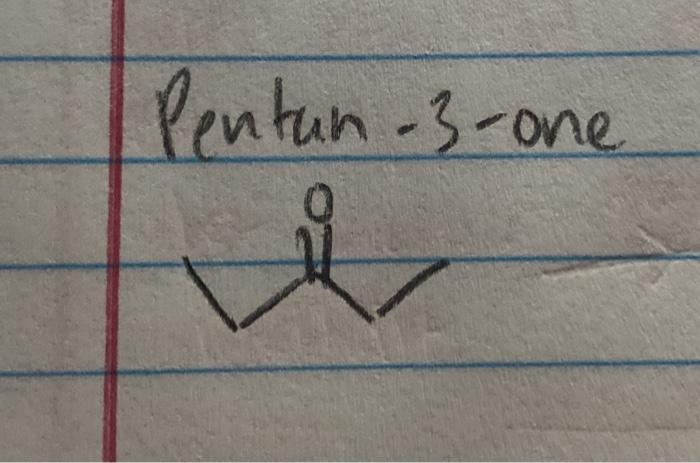 Pentan-3-one
O